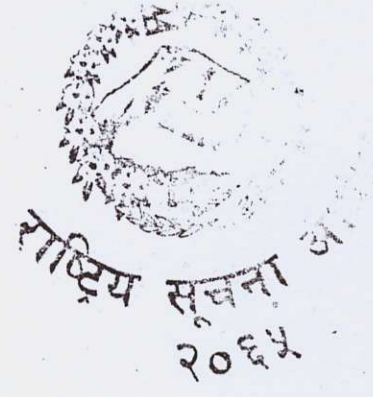 राष्ट्रिय सूचना
२०६५